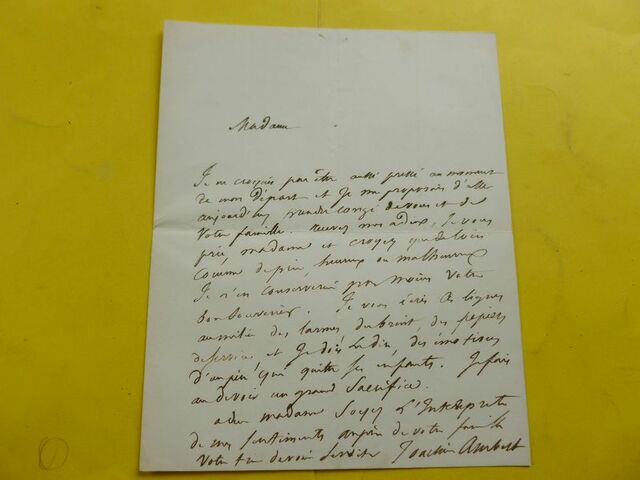 Madame
Je ne croyais pas être aussi pressé au moment
de mon Départ et Je me proposais d'aller
aujourd'hui prendre congé de vous et de
Votre famille. recevez mes adieux, Je vous
prie madame et croyez que de loin
comme de près, heureux ou malheureux
Je n'en conserverai pas moins votre
bon souvenir. Je vous écris ces lignes
au milieu des larmes du bruit, des papiers
de service et Je dois le dire, des émotions
d'un père qui quitte ses enfants. Je fais
au devoir un grand Sacrifice.
adieu madame Soyez L'Interprete
de mes Sentiments auprès de votre famille
Votre dévoué Serviteur Joachim Ambert